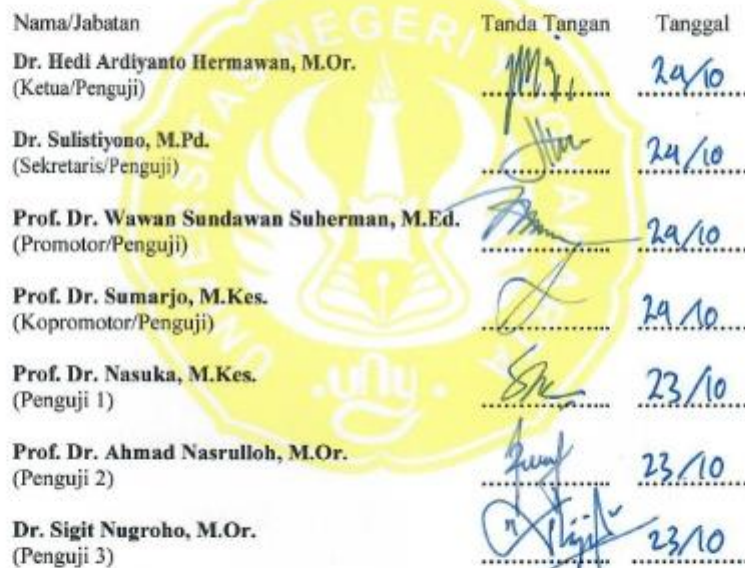 Nama/Jabatan Tanda Tangan Tanggal
Dr. Hedi Ardiyanto Hermawan, M.Or.
(Ketua/Penguji) 24/10
Dr. Sulistiyono, M.Pd.
(Sekretaris/Penguji) 24/10
Prof. Dr. Wawan Sundawan Suherman, M.Ed.
(Promotor/Penguji) 24/10
Prof. Dr. Sumarjo, M.Kes.
(Kopromotor/Penguji) 24/10
Prof. Dr. Nasuka, M.Kes.
(Penguji 1) 23/10
Prof. Dr. Ahmad Nasrulloh, M.Or.
(Penguji 2) 23/10
Dr. Sigit Nugroho, M.Or.
(Penguji 3) 23/10
UNIVERSITAS NEGERI YOGYAKARTA
uny